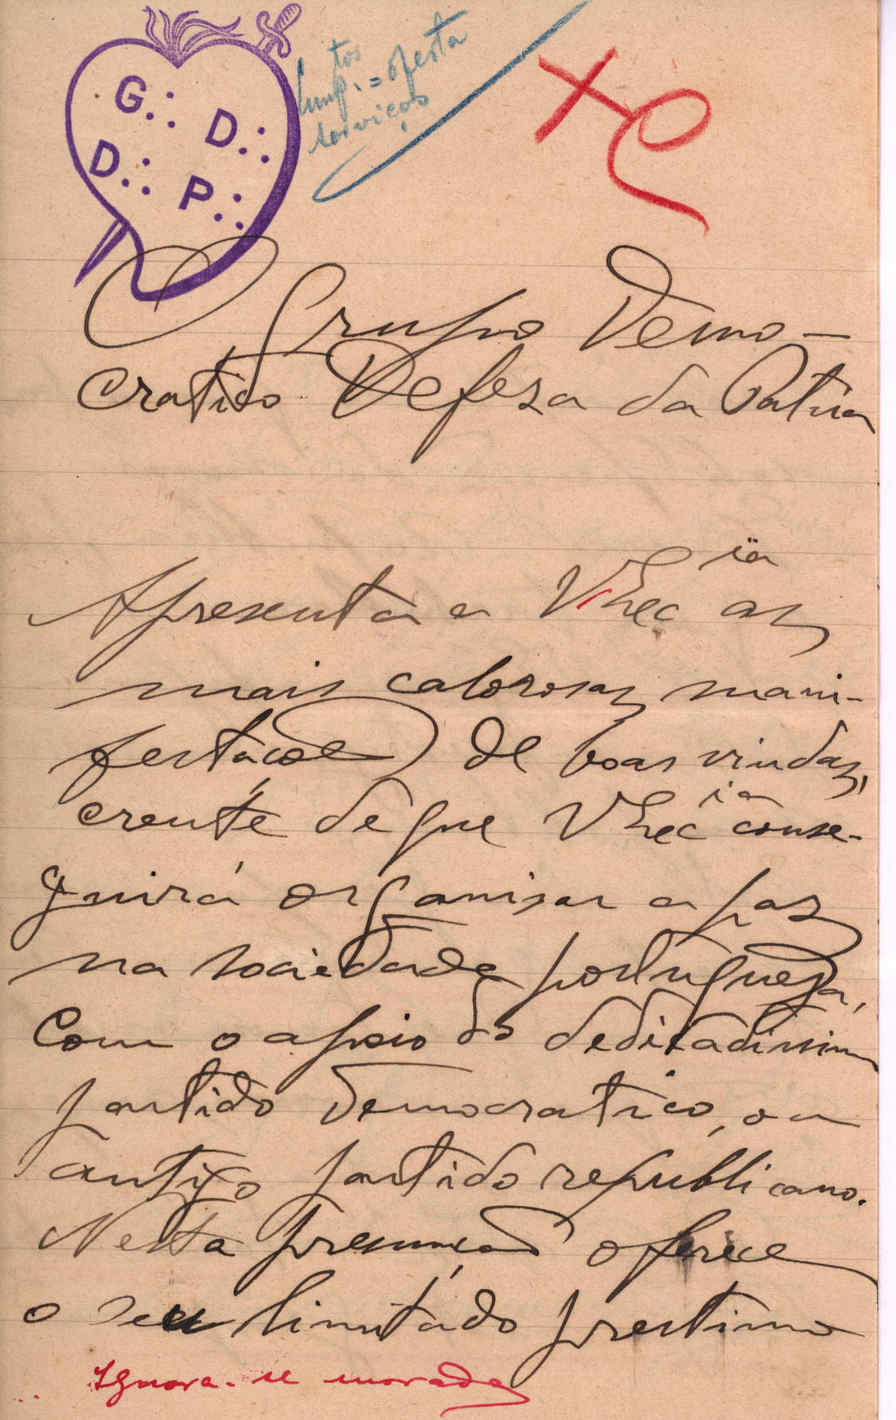 G∴ D∴
D∴ P∴
tos
Cump. = oferta
serviços
O Grupo Demo-
cratico Defeza da Patria
Apresenta a V Exc ia as
mais calorosas mani-
festações de boas vindas,
crente de que V Exc ia conse-
guirá organisar a paz
na sociedade portugueza,
Com o apoio do dedicadissimo
partido democratico, ou
antigo partido republicano.
Nesta presunção oferece
o seu limitado prestimo
Ignora-se morada